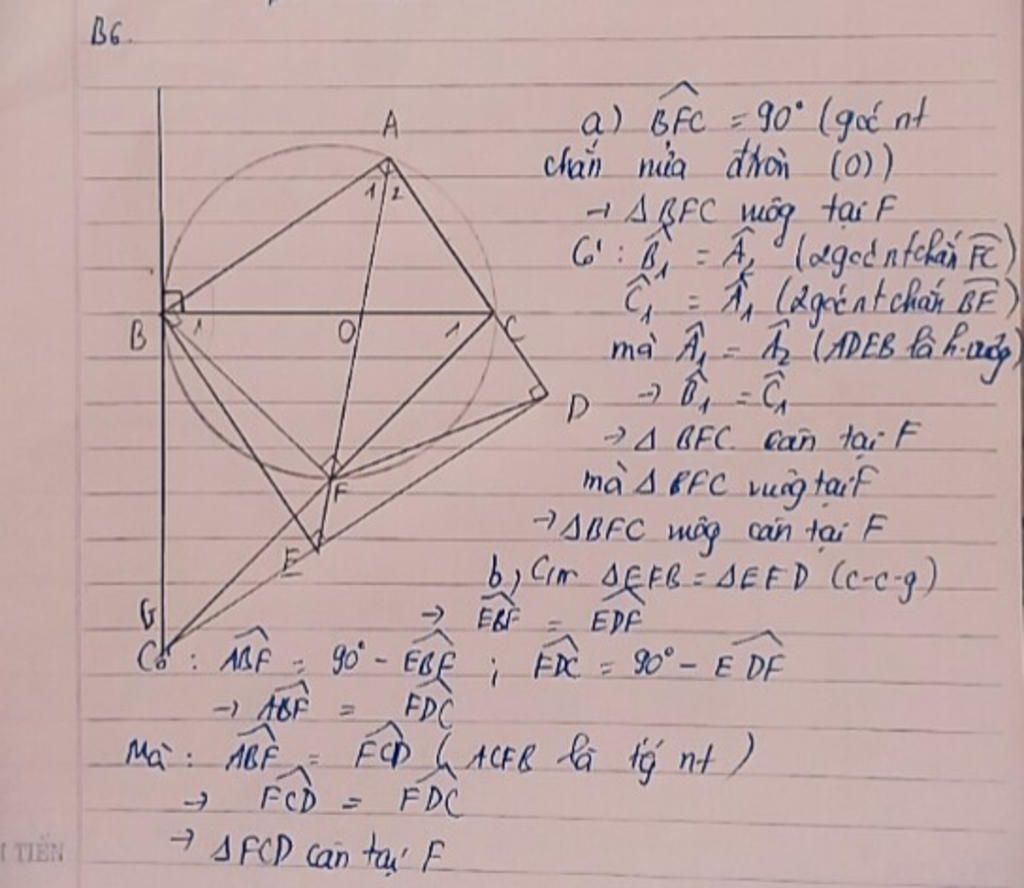 B6.
A
1 2
B
1
O
1
C
D
F
E
G
a) BFC = 90° (góc nt
chắn nửa đtròn (O))
→ Δ BFC vuông tại F
Có : B₁ = A₂ (2 góc nt chắn FC)
C₁ = A₁ (2 góc nt chắn BF)
mà A₁ = A₂ (ADEB là h.vuông)
→ B₁ = C₁
→ Δ BFC cân tại F
mà Δ BFC vuông tại F
→ ΔBFC vuông cân tại F
b, C/m ΔEFB = ΔEFD (c-c-g)
→ EBF = EDF
Có : ABF = 90° - EBF ; FDC = 90° - EDF
→ ABF = FDC
Mà : ABF = FCD ( ACFB là tg nt )
→ FCD = FDC
→ ΔFCD cân tại F
TIẾN